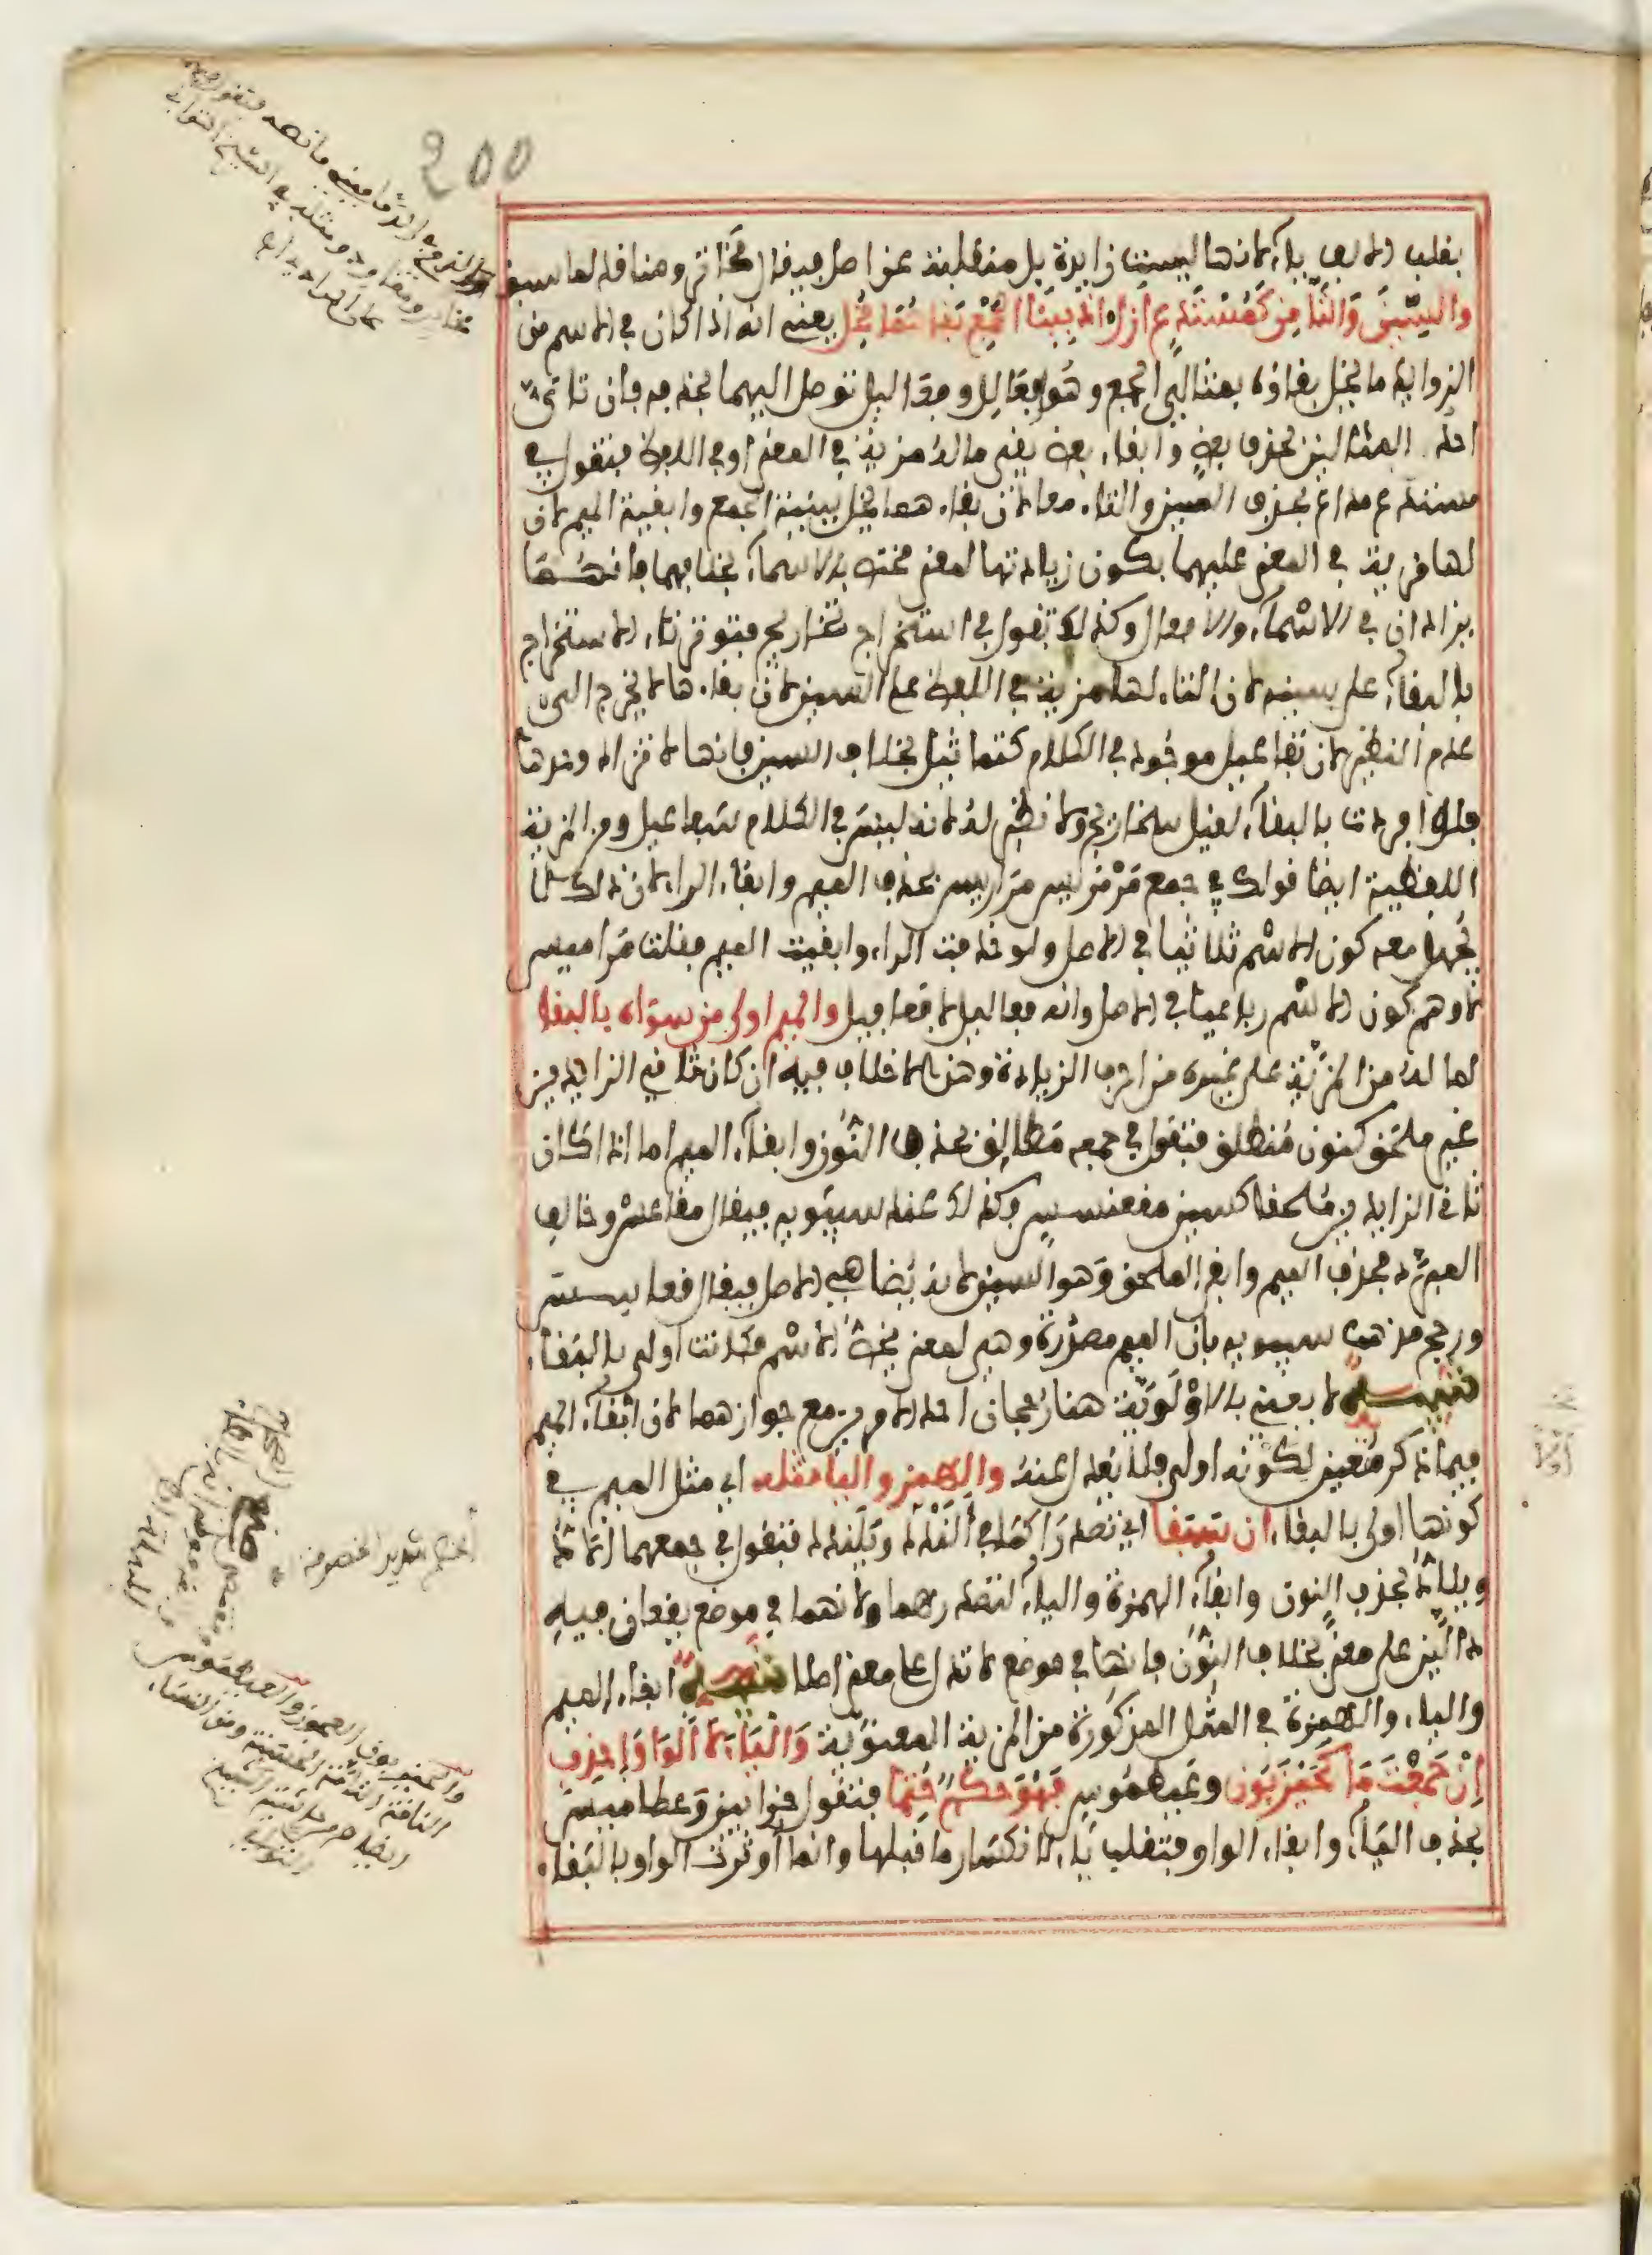 200
بقلب الالف ياء لانها ليست زايدة بل منقلبة عن اصل فيقال مختاتر ومناقد لما سبق
والسين والتا من كمستدع ازل اذ ببنا الجمع بقاهما مخل يعني انه اذا كان في الاسم من
الزوايد ما يخل بقاؤه بمثالي الجمع وهو فعالل وفعاليل توصل اليهما بحذفه فان تاتى
احد المثالين بحذف بعض وابقاء بعض بقي ما له مزية في المعنى او في اللفظ فتقول في
مستدع مداع بحذف السين والتاء معا لان بقاءهما يخل ببنية الجمع وابقيت الميم لان
لها مزية في المعنى عليهما بكون زيادتها لمعنى مختص بالاسماء بخلافهما فانهما
يزادان في الاسماء والافعال وكذلك تقول في استخراج تخاريج فتوثر تاء الاستخراج
بالبقاء على سينه لان التاء لها مزية في اللفظ على السين لان بقاءها لا يخرج الى
عدم النظير لان تفاعيل موجود في الكلام كتماثيل بخلاف السين فانها لا تزاد وحدها
فلو افردت بالبقاء لقيل سخاريج ولا نظير له لانه ليس في الكلام سفاعيل ومن المزية
اللفظية ايضا قولك في جمع مرمريس مراريس بحذف الميم وابقاء الراء لان ذلك لا
يجهل معه كون الاسم ثلاثيا في الاصل ولو حذفت الراء وابقيت الميم فقلت مراميس
لاوهم كون الاسم رباعيا في الاصل وانه فعاليل لا فعافيل والميم اولى من سواه بالبقا
لما له من المزية على غيره من احرف الزيادة وهذا لا خلاف فيه ان كان ثاني الزايدين
غير ملحق كنون منطلق فتقول في جمعه مطالق بحذف النون وابقاء الميم اما اذا كان
ثاني الزايدين ملحقا كسين مقعنسس فكذلك عند سيبويه فيقال مقاعس وخالف
المبرد فحذف الميم وابقى الملحق وهو السين لانه يضاهي الاصل فيقال قعاسيس
ورجح مذهب سيبويه بان الميم مصدرة وهي لمعنى يخص الاسم فكانت اولى بالبقاء
تنبيه لا يعني بالاولوية هنا رجحان احد الامرين مع جوازهما لان ابقاء الميم
فيما ذكر متعين لكونه اولى فلا يعدل عنه والهمز واليا مثله اي مثل الميم في
كونها اولى بالبقاء ان سبقا اي تصدرا كما في ألندد ويلندد فتقول في جمعهما ألاد
ويلاد بحذف النون وابقاء الهمزة والياء لتصدرهما ولانهما في موضع يقعان فيه
دالين على معنى بخلاف النون فانها في موضع لا تدل على معنى اصلا تنبيه ابقاء الميم
والياء والهمزة في المثل المذكورة من المزية المعنوية والياء لا الواو احذف
ان جمعت ما كحيزبون وعيطموس فهو حكم حتما فتقول حزابين وعطاميس
بحذف الياء وابقاء الواو فتقلب ياء لانكسار ما قبلها وانما اوثرت الواو بالبقاء
الخصم شديد الخصومة